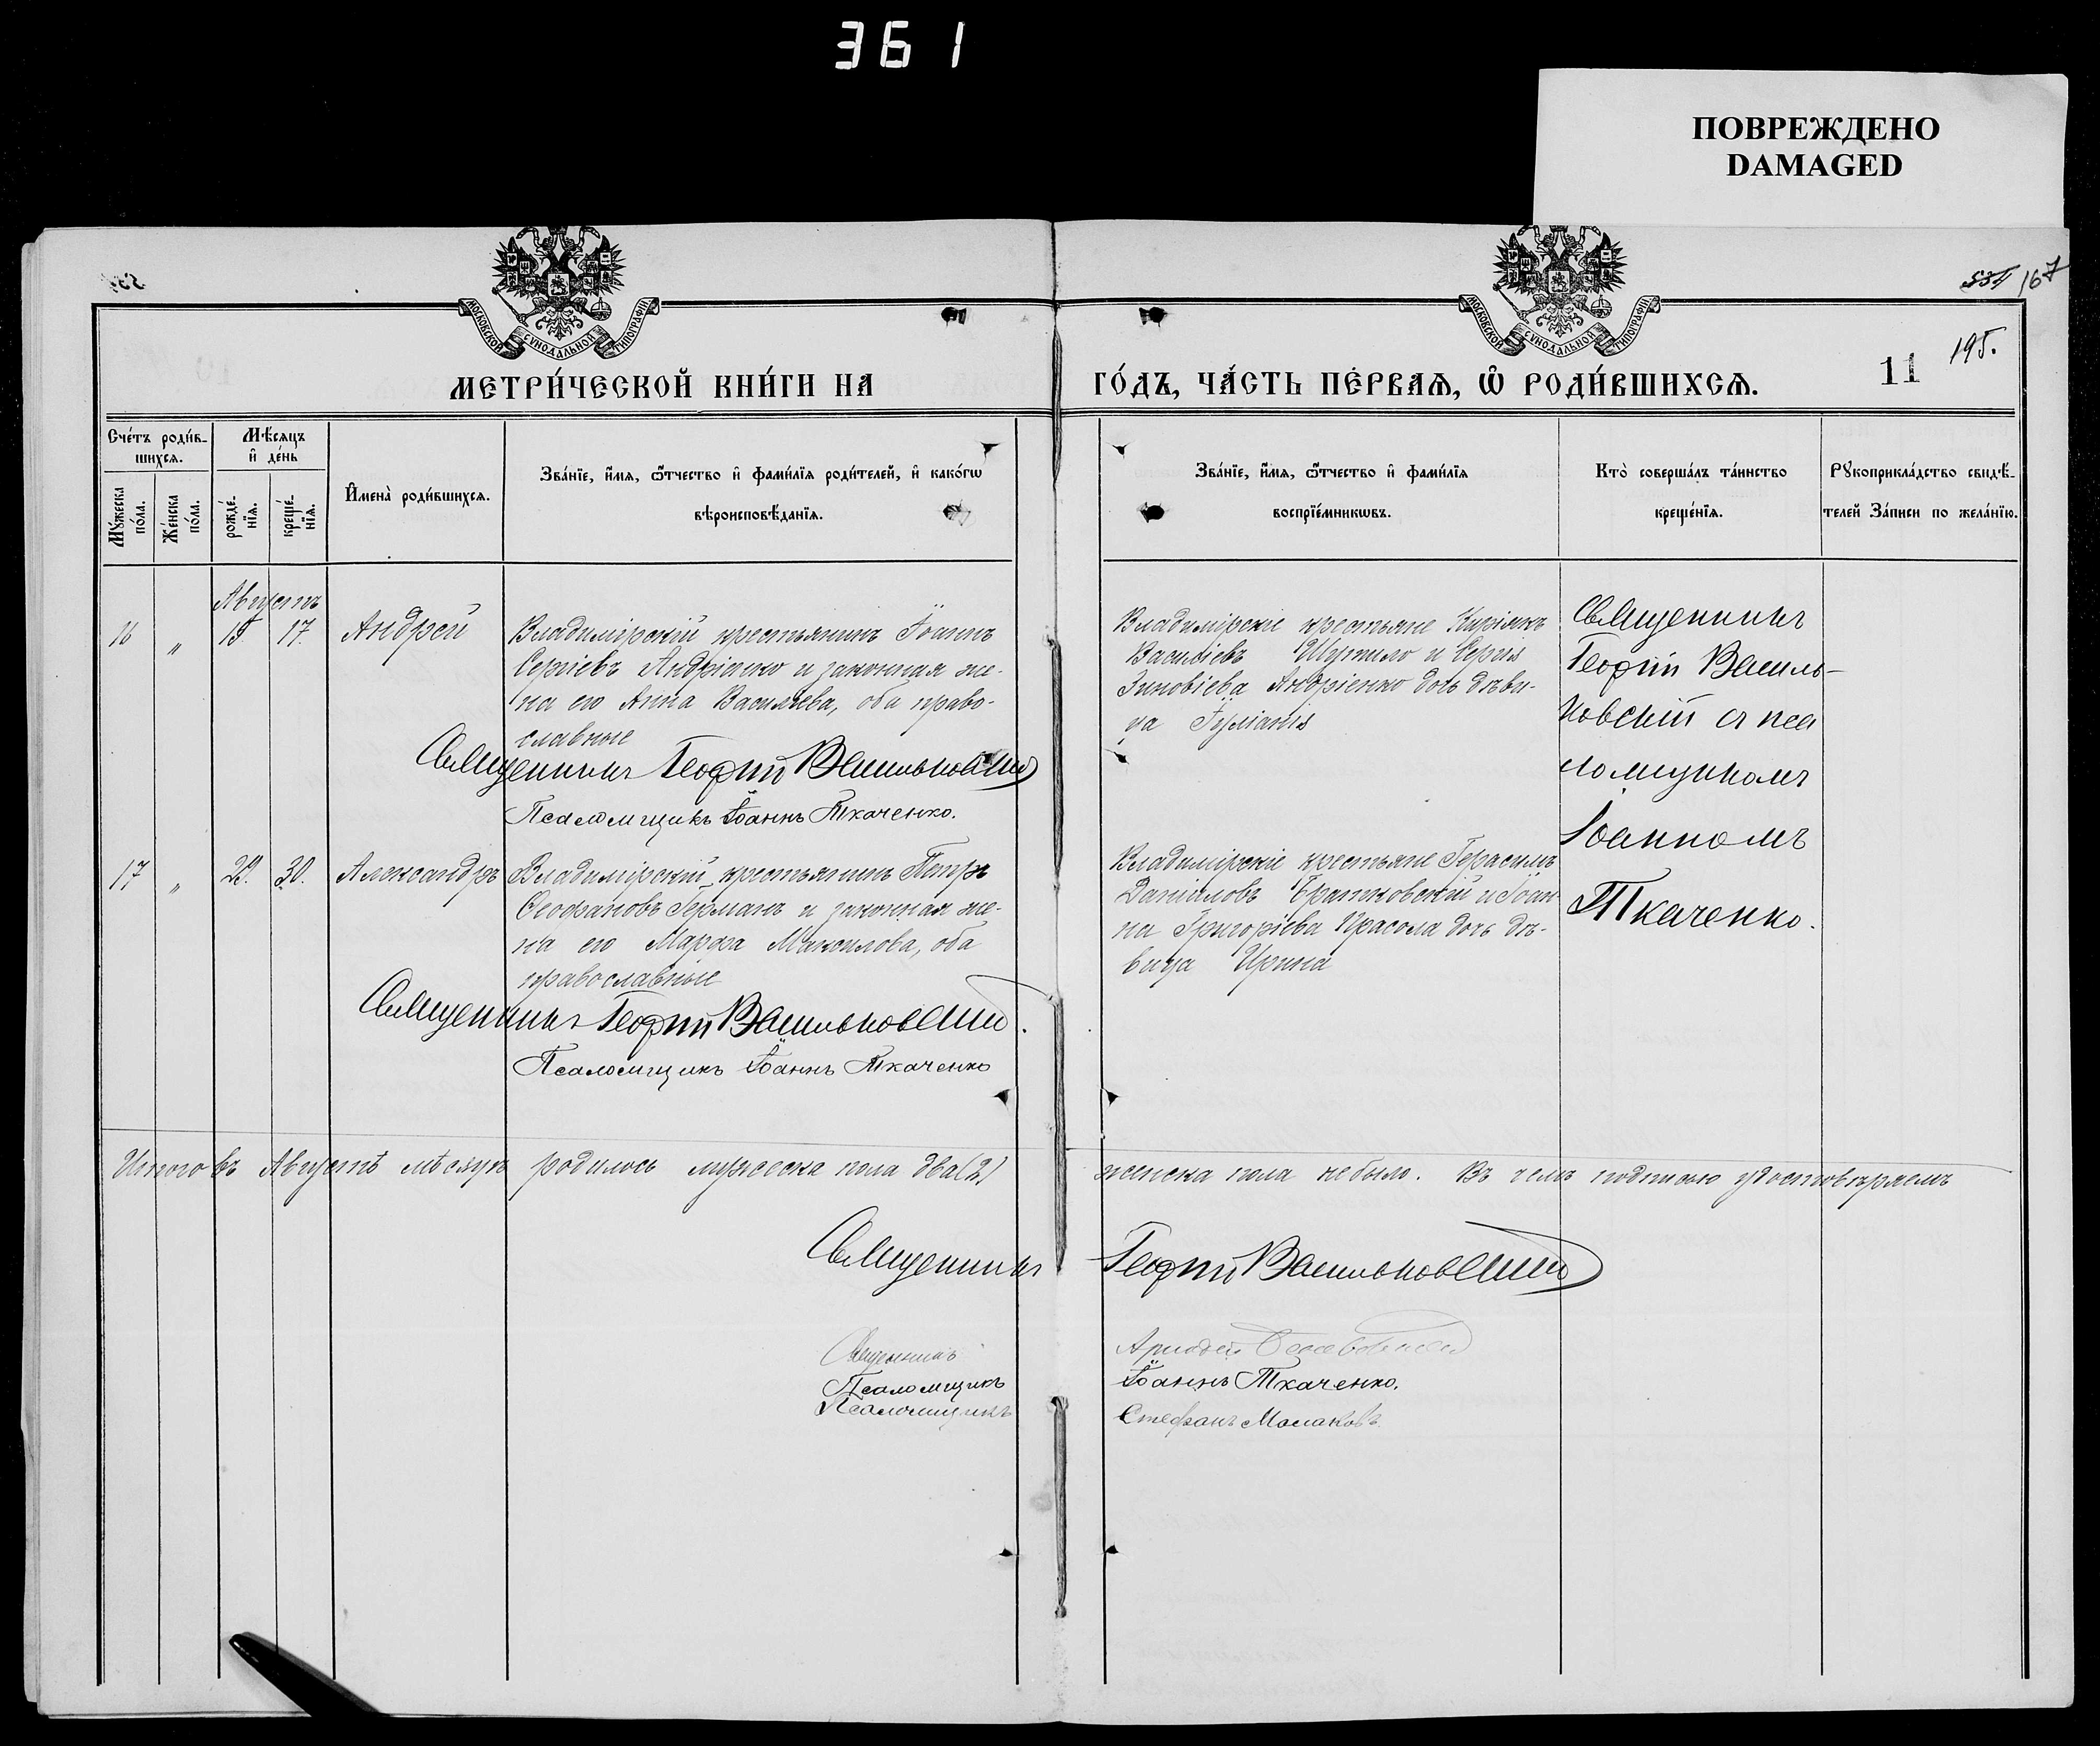 361
ПОВРЕЖДЕНО
DAMAGED
167
195.
11
МОСКОВСКОЙ СѴНОДАЛЬНОЙ ТИПОГРАФІИ
МОСКОВСКОЙ СѴНОДАЛЬНОЙ ТИПОГРАФІИ
МЕТРИ́ЧЕСКОЙ КНИ́ГИ НА
ГО́ДЪ, ЧА́СТЬ ПЕ́РВАѦ, Ѡ РОДИ́ВШИХСѦ.
Сче́тъ роди́в-
шихсѧ.
Мѣ́сѧцъ
и҆ де́нь
Мꙋ́жеска
по́ла.
Же́нска
по́ла.
рожде́-
нїѧ.
креще́-
нїѧ.
И҆мена̀ роди́вшихсѧ.
Зва́нїе, и҆́мѧ, ѻ҆́тчество и҆ фами́лїѧ роди́телей, и҆ како́гѡ
вѣроисповѣ́данїѧ.
Зва́нїе, и҆́мѧ, ѻ҆́тчество и҆ фами́лїѧ
воспрїе́мникѡвъ.
Кто̀ соверша́лъ та́инство
креще́нїѧ.
Рꙋкоприкла́дство свидѣ́-
телей За́писи по жела́нїю.
Августъ
16 „ 15 17. Андрей
Владимірскій крестьянинъ Іоаннъ
Сергіевъ Андріенко и законная же-
на его Анна Васильева, оба право-
славные
Священникъ Георгій Васильковскій
Псаломщикъ Іоаннъ Ткаченко.
Владимірскіе крестьяне Киріакъ
Васильевъ Шутило и Сергія
Зиновіева Андріенко дочь дѣви-
ца Іуліанія
Священникъ
Георгій Василь-
ковскій съ пса
ломщикомъ
Іоанномъ
Ткаченко.
17 „ 22. 30. Александръ
Владимірскій крестьянинъ Петръ
Ѳеофановъ Германъ и законная же-
на его Марѳа Мануилова, оба
православные
Священникъ Георгій Васильковскій.
Псаломщикъ Іоаннъ Ткаченко
Владимірскіе крестьяне Герасимъ
Даніиловъ Братковскій и Іоан
на Григоріева Прасола дочь дѣ-
вица Ирина
Итого въ Августѣ мѣсяцѣ родилось мужеска пола два (2)
женска пола не было. Въ чемъ подписью удостовѣряемъ
Священникъ Георгій Васильковскій
Священникъ
Псаломщикъ Іоаннъ Ткаченко.
Псаломщикъ Стефанъ